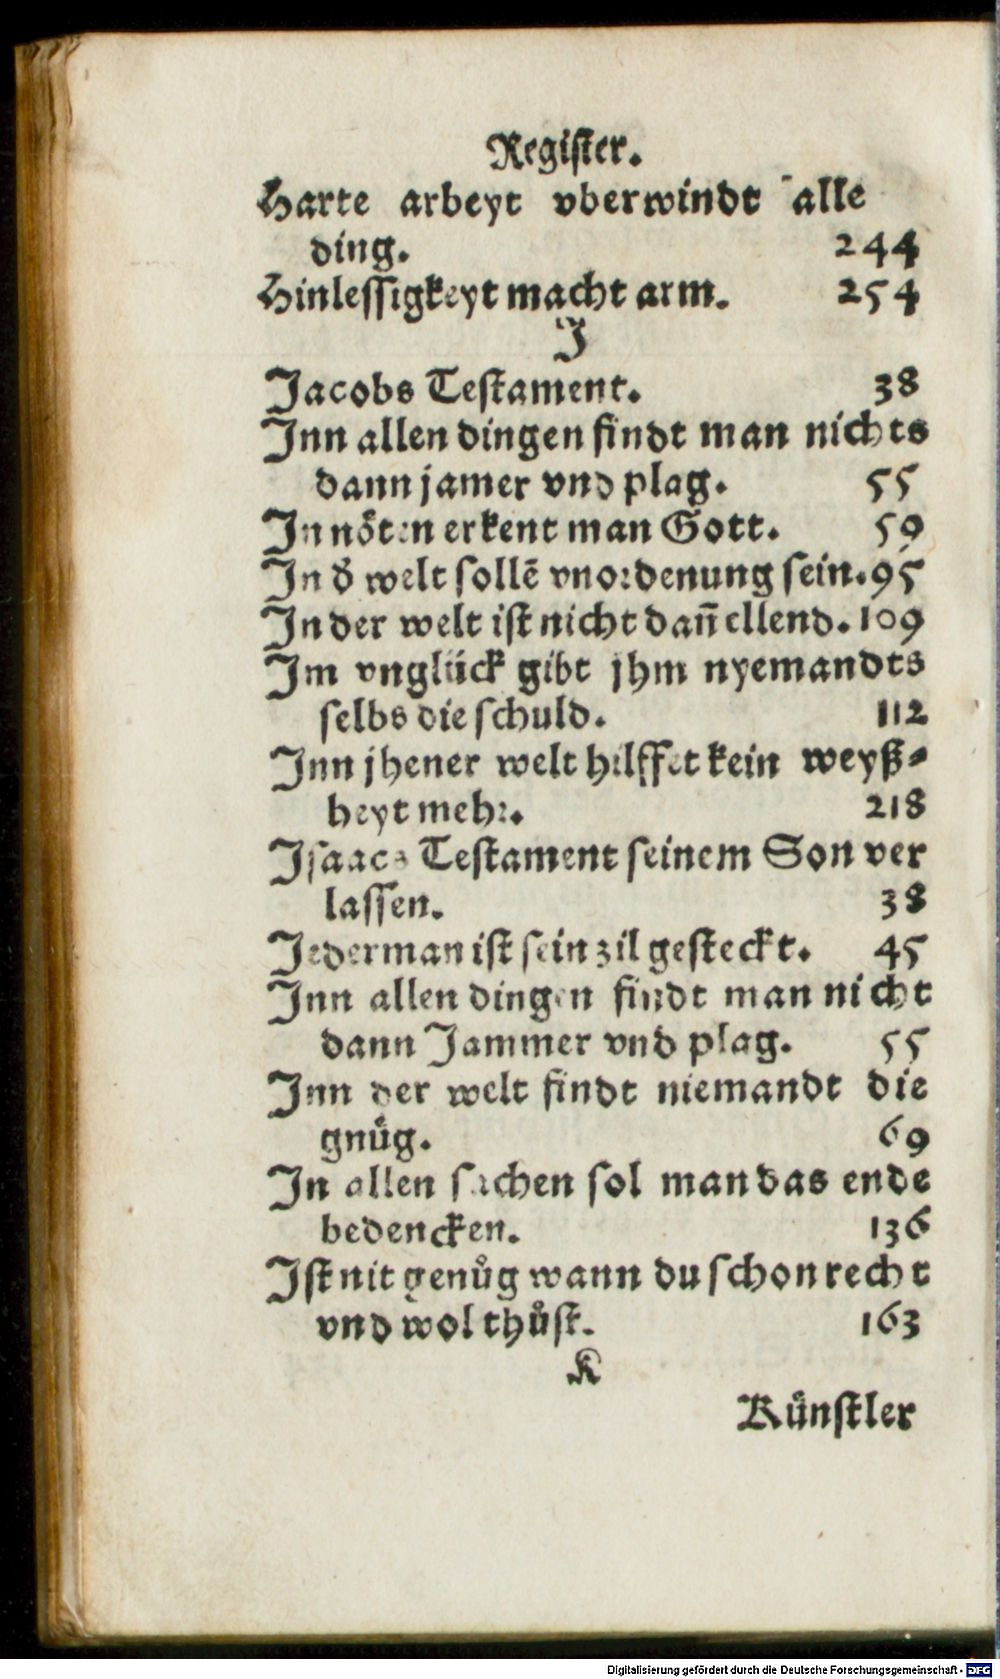 Register.
Harte arbeyt vberwindt alle
ding. 244
Hinlessigkeyt macht arm. 254
J
Jacobs Testament. 38
Jnn allen dingen findt man nichts
dann jamer vnd plag. 55
Jn nöten erkent man Gott. 59
Jn d̄ welt sollē vnordenung sein. 95
Jn der welt ist nicht dañ ellend. 109
Jm vnglück gibt jhm nyemandts
selbs die schuld. 112
Jnn jhener welt hilffet kein weyß⸗
heyt mehr. 218
Jsaacs Testament seinem Son ver
lassen. 38
Jederman ist sein zil gesteckt. 45
Jnn allen dingen findt man nicht
dann Jammer vnd plag. 55
Jnn der welt findt niemandt die
gnuͤg. 69
Jn allen sachen sol man das ende
bedencken. 136
Jst nit genuͦg wann du schon recht
vnd wol thuͦst. 163
K
Kuͤnstler
Digitalisierung gefördert durch die Deutsche Forschungsgemeinschaft - DFG